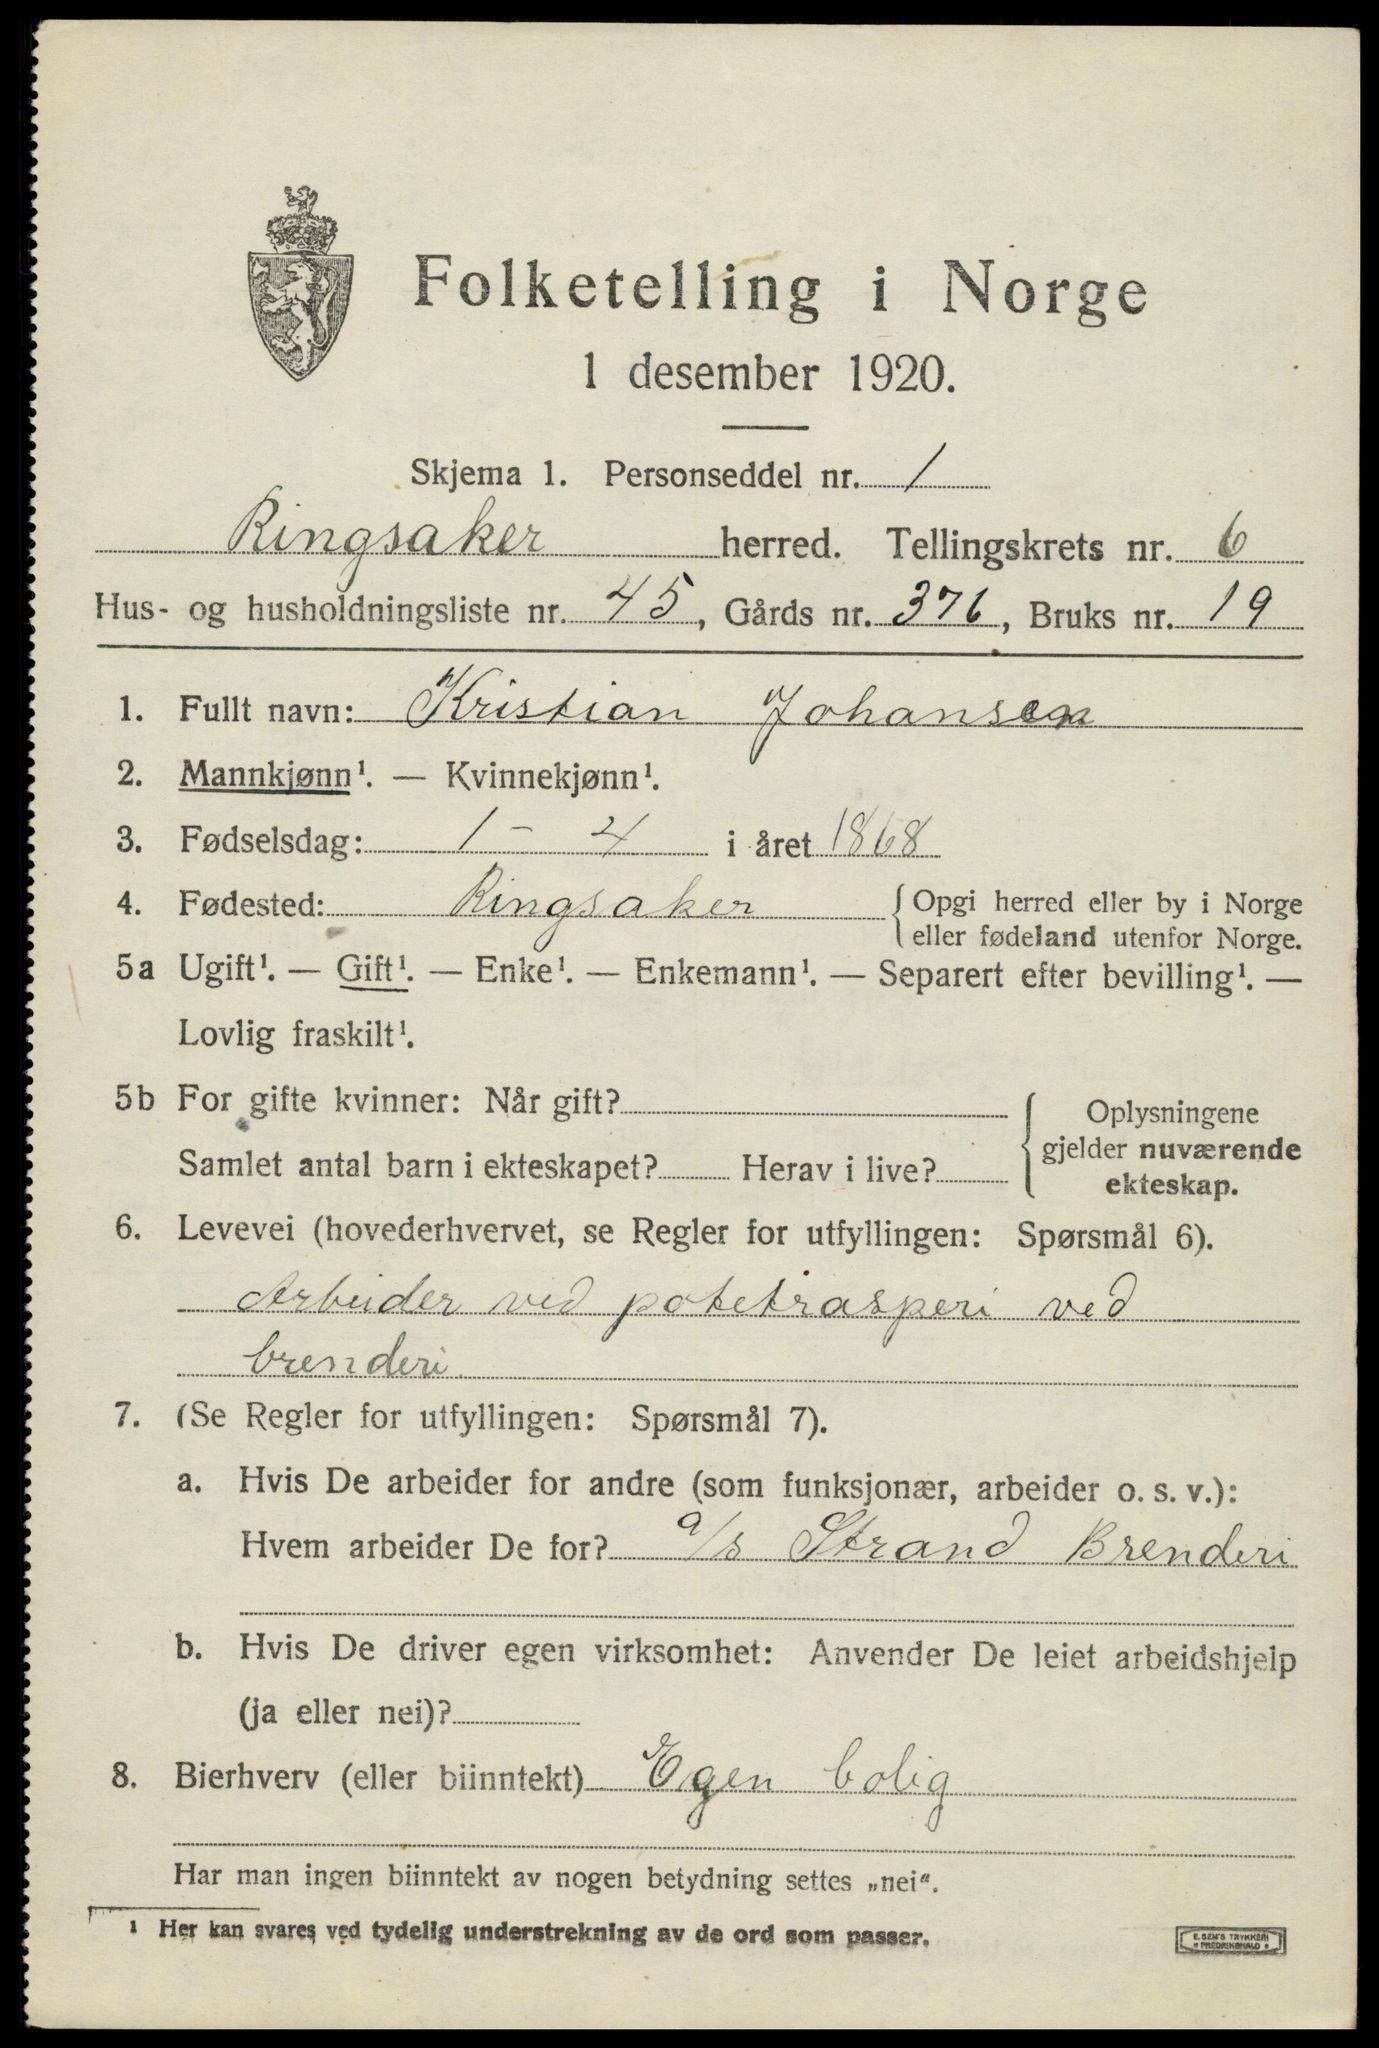 Folketelling i Norge
1 desember 1920.
Skjema 1. Personseddel nr. 1
Ringsaker herred. Tellingskrets nr. 6
Hus- og husholdningsliste nr. 45, Gårds nr. 376, Bruks nr. 19
1. Fullt navn: Kristian Johansen
2. Mannkjønn¹. — Kvinnekjønn¹.
3. Fødselsdag: 1 - 4 i året 1868
4. Fødested: Ringsaker { Opgi herred eller by i Norge
eller fødeland utenfor Norge.
5a Ugift¹. — Gift¹. — Enke¹. — Enkemann¹. — Separert efter bevilling¹. —
Lovlig fraskilt¹.
5b For gifte kvinner: Når gift?
Samlet antal barn i ekteskapet? Herav i live?
{ Oplysningene
gjelder nuværende
ekteskap.
6. Levevei (hovederhvervet, se Regler for utfyllingen: Spørsmål 6).
Arbeider ved potetrasperi ved
brenderi
7. (Se Regler for utfyllingen: Spørsmål 7).
a. Hvis De arbeider for andre (som funksjonær, arbeider o. s. v.):
Hvem arbeider De for? a/s Strand Brenderi
b. Hvis De driver egen virksomhet: Anvender De leiet arbeidshjelp
(ja eller nei)?
8. Bierhverv (eller biinntekt) Egen bolig
Har man ingen biinntekt av nogen betydning settes „nei“.
¹ Her kan svares ved tydelig understrekning av de ord som passer.
E. SEM'S TRYKKERI
FREDRIKSHALD